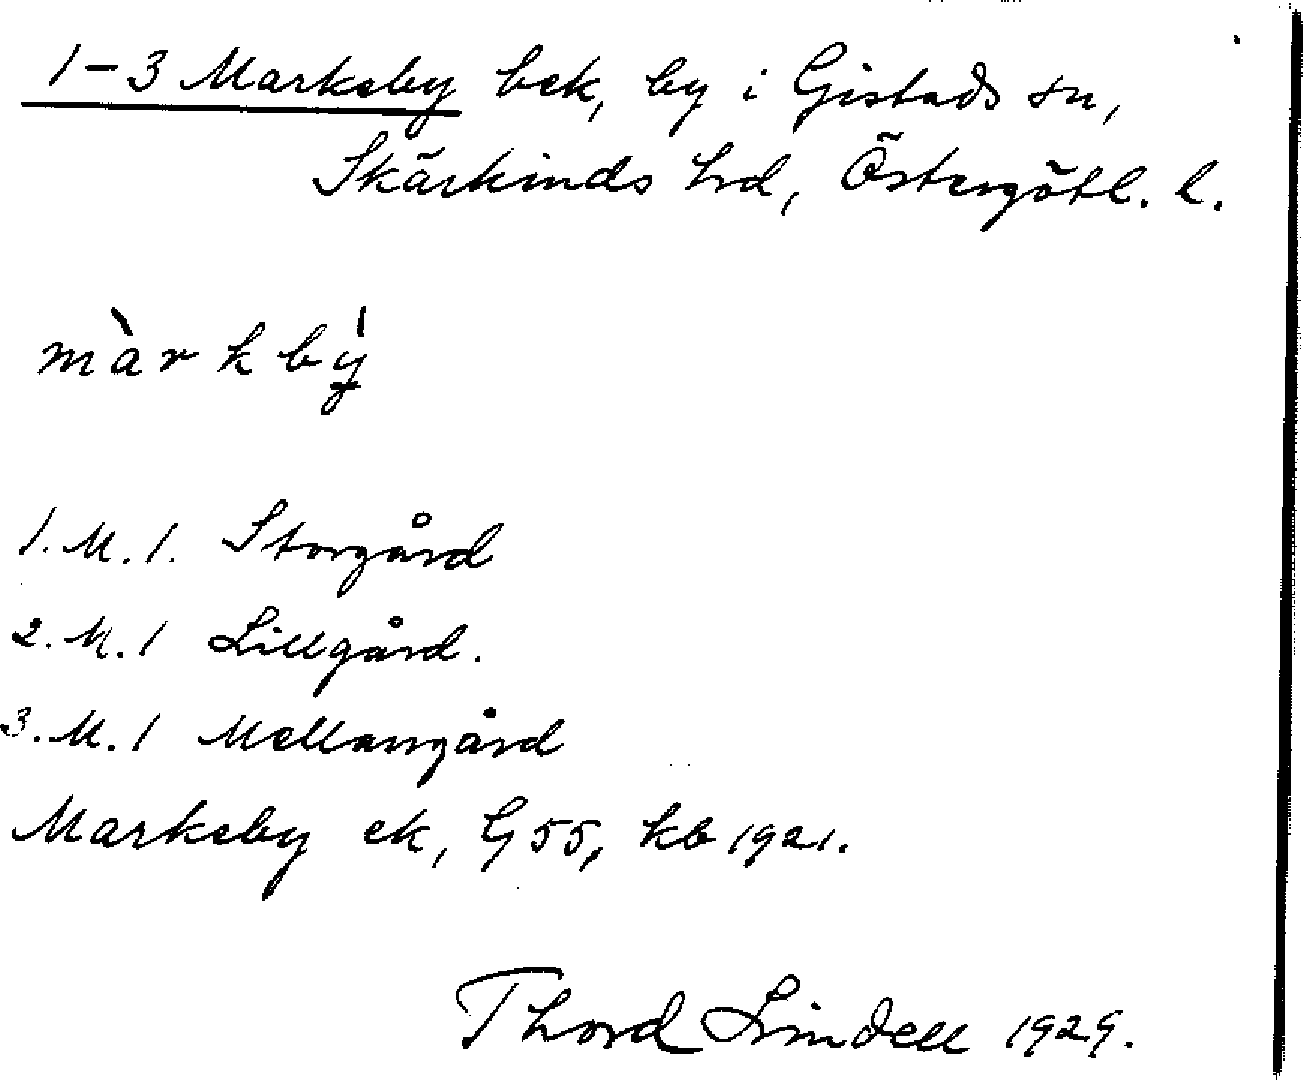 1-3 Markeby bek, by i Gistads sn,
Skärkinds hrd, Östergötl. l.
màrkbý
1. M. 1. Storgård
2. M. 1 Lillgård.
3. M. 1 Mellangård
Markeby ek, G 55, kb 1921.
Thord Lindell 1929.